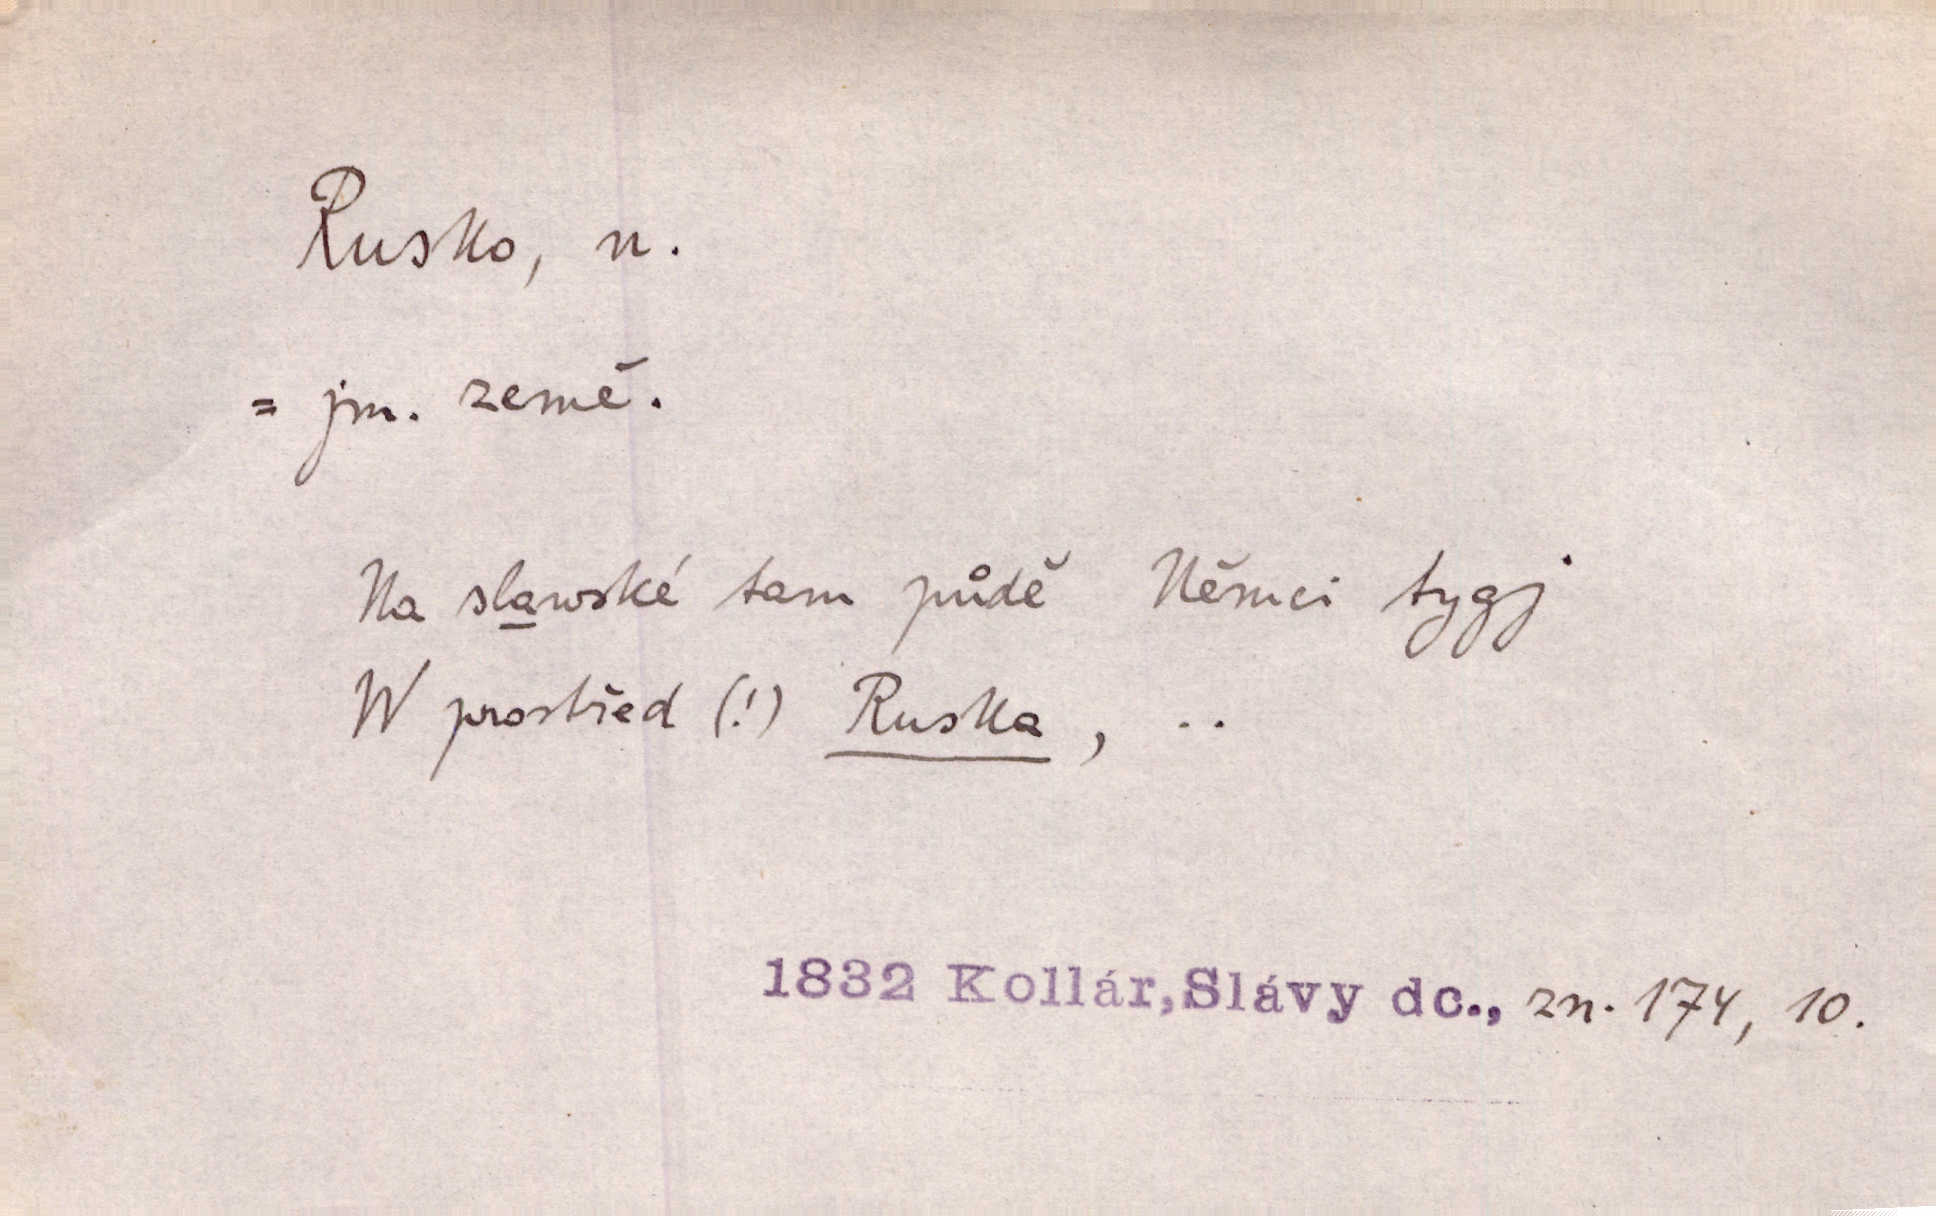 Rusko, n.
= jm. země.
Na slawské tam půdě Němci tygj
W prostřed (!) Ruska, ..
1832 Kollár,Slávy dc., zn. 174, 10.